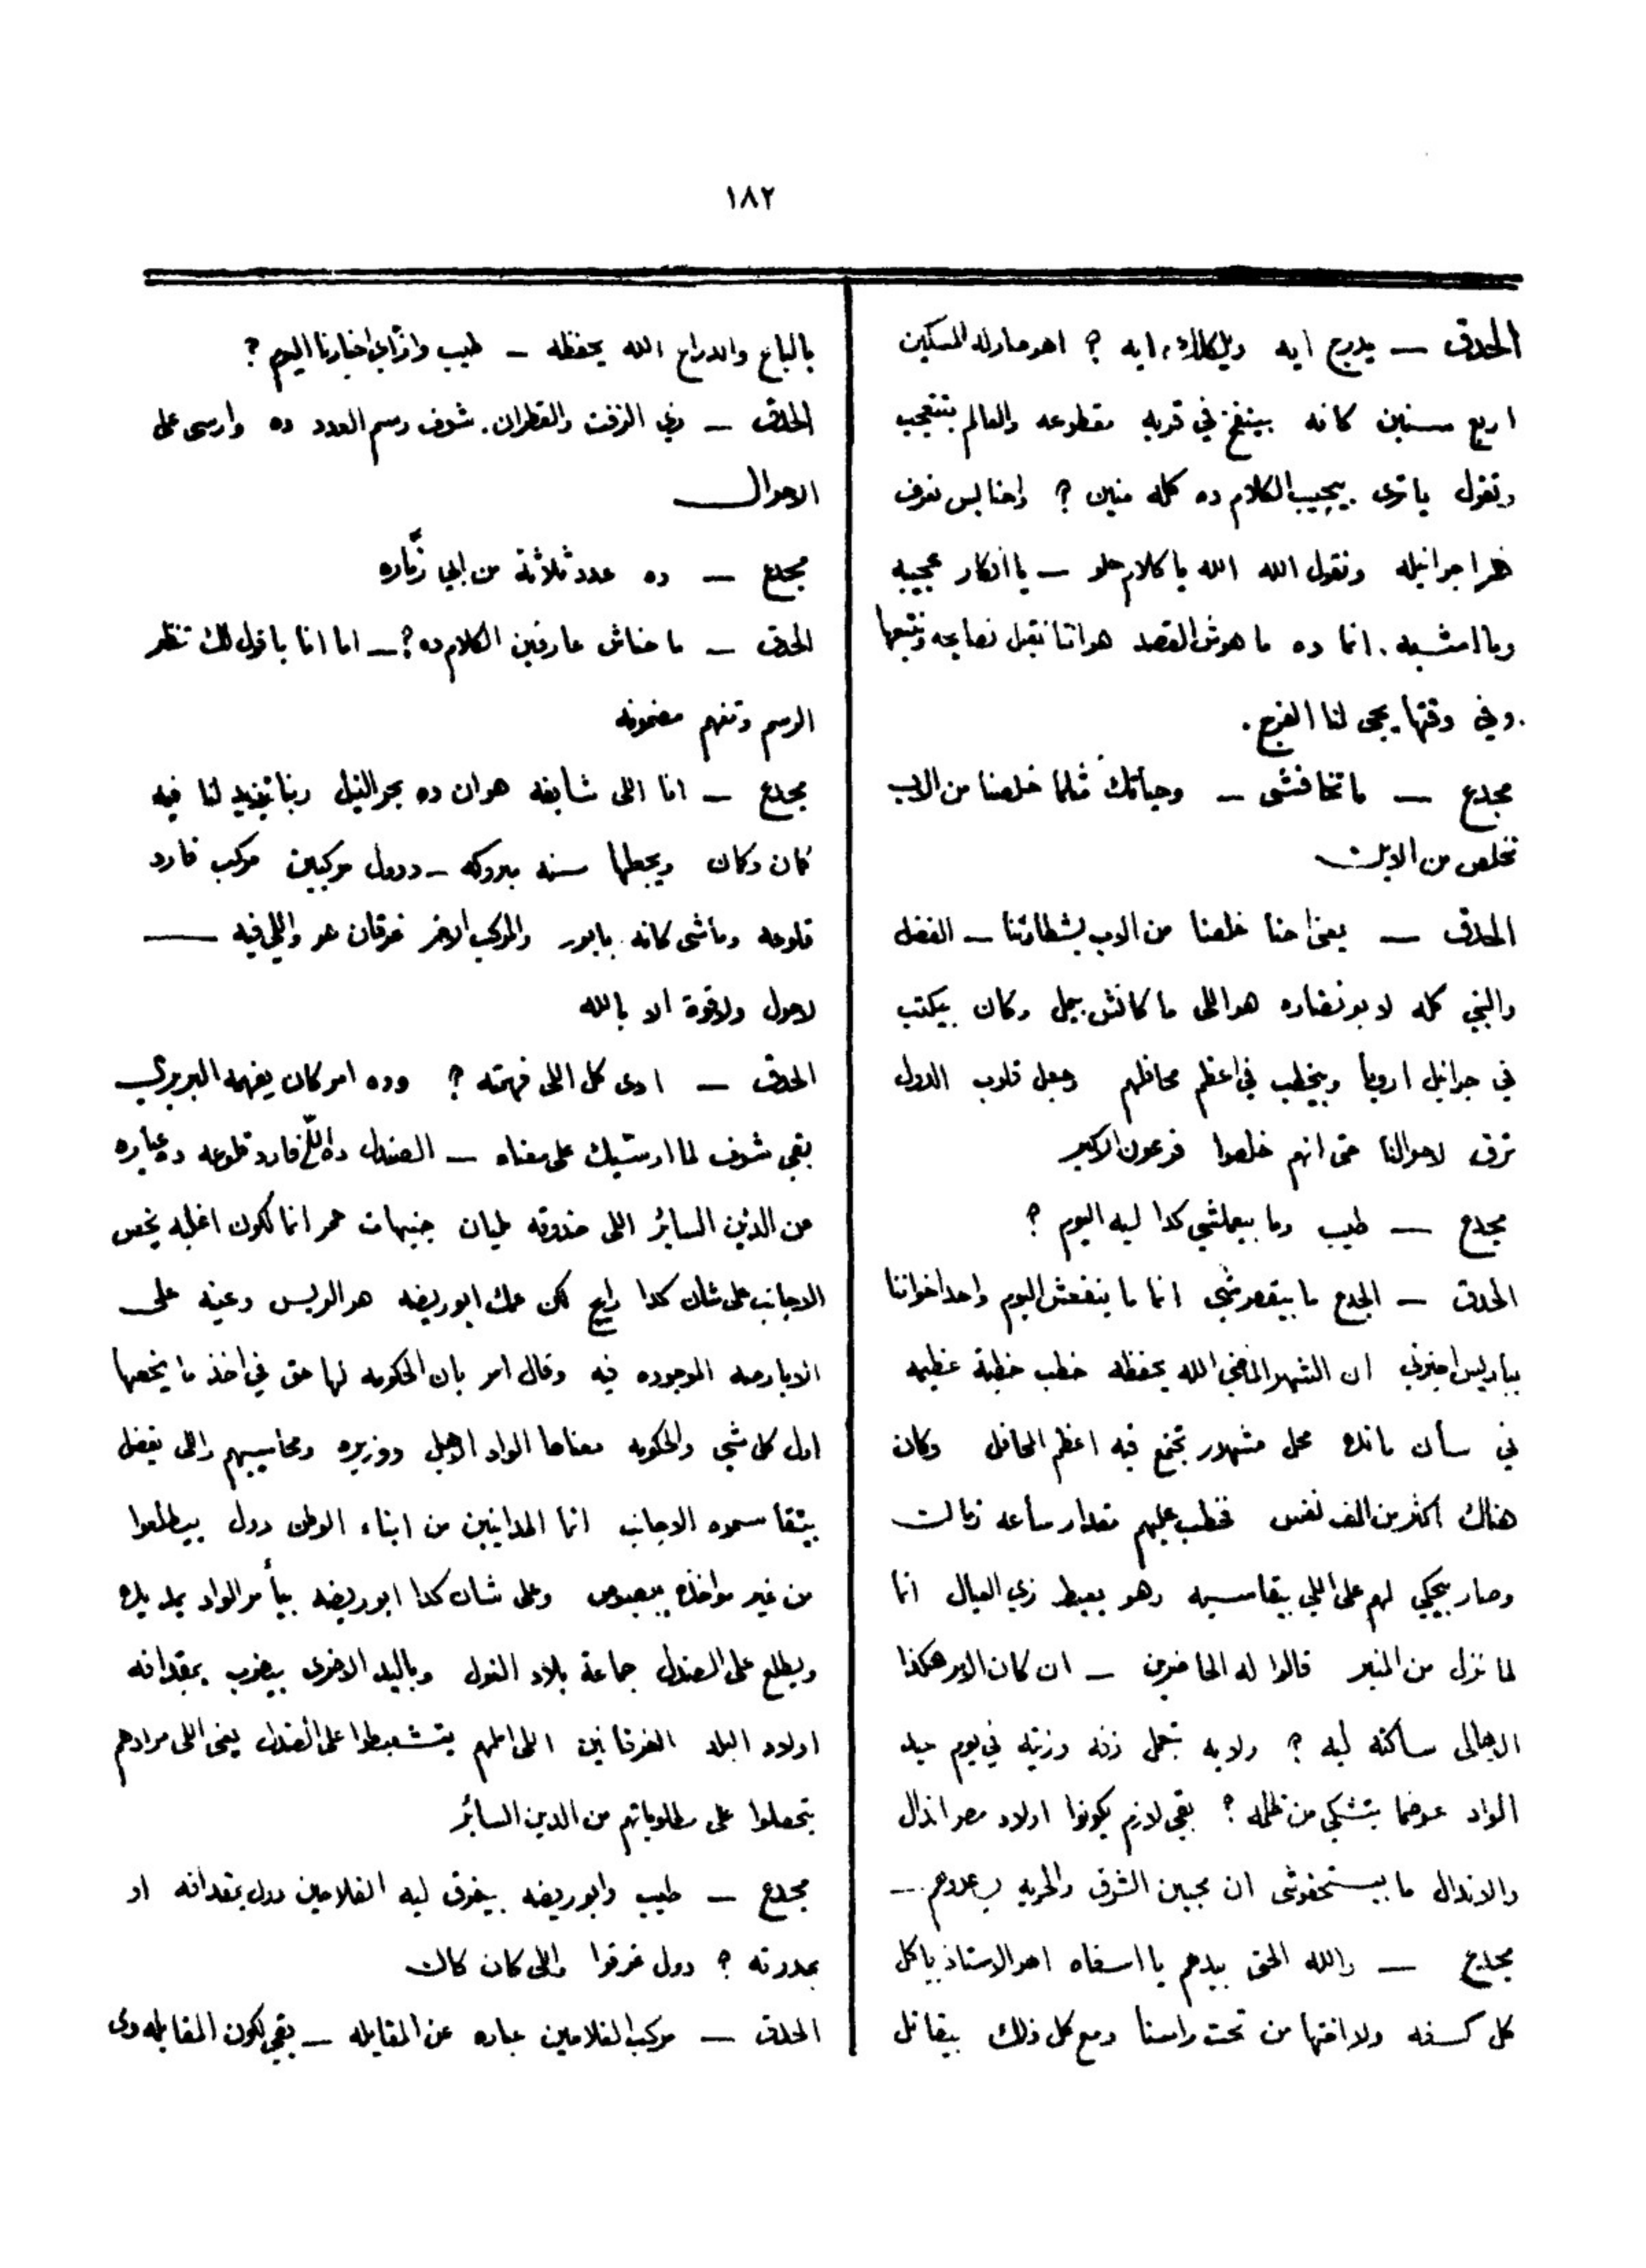 ١٨٢
الحدق — يدرج ايه ايه ؟ اهو صار له المسكين
اربع سنين كانه بينفخ في قربه مقطوعه والعالم بتتعجب
وتقول ياترى بيجيب الكلام ده كله منين ؟ واحنا بس نعرف
نقرا جرانيله ونقول الله الله يا كلام حلو — يا افكار عجيبه
ويا امشيه . انما ده ما هوش القصد هو اننا نقبل نصايحه ونتبعها
. وفي وقتها يجى لنا الفرج .
مجدع — ما تخافشى — وحياتك مثلما خلصنا من الاب
نخلص من الابن
الحدق — يعنى احنا خلصنا من الاب بشطارتنا — الفضل
والنبي كله لابو نضاره هو اللى ما كانش يمل وكان بيكتب
في جرانيل اروبا وبيخطب في اعظم محافلهم وجعل قلوب الدول
ترق لاحوالنا حتى انهم خلعوا فرعون الاكبر
مجدع — طيب وما بيعملشي كدا ليه اليوم ؟
الحدق — الجدع ما بيقصرشي انما ما ينفعش اليوم واحد اخواننا
بباريس اخبرني ان الشهر الماضي الله يحفظه خطب خطبة عظيمه
في محل مشهور تجتمع فيه اعظم المحافل وكان
هناك اكثر من الف نفس فخطب عليهم مقدار ساعه زمان
وصار يحكي لهم على اللي بيقاسيه وهو بيعيط زي العيال انما
لما نزل من المنبر قالوا له الحاضرين — ان كان الامر هكذا
الاهالى ساكته ليه ؟ ولا به تعمل زفه وزينه في يوم عيد
الواد عوضما تشتكي من ظلمه ؟ بقى لازم يكونوا اولاد مصر انذال
والانذال ما بيستحقوش ان محبين الشرف والحريه
مجدع — والله الحق بيدهم يا اسفاه اهو الاستاذ ياكل
كل كسفه ولا اختها من تحت راسنا ومع كل ذلك بيقاتل
بالباع والدراع الله يحفظه — طيب وازاي اخبارنا اليوم ؟
الحدق — زي الزفت والقطران . شوف رسم العدد ده وارسى على
الاحوال
مجدع — ده عدد ثلاثة من ابي زمّاره
الحدق — ما حناش عارفين الكلام ده ؟ — اما انا باقول لك تنظر
الرسم وتفهم مضمونه
مجدع — انا اللى شايفه هو ان ده بحر النيل ربنا يزيد لنا فيه
كمان وكمان ويجعلها سنه مبروكه — ودول مركبين مركب فارد
قلوعه وماشى كانه بابور والمركب الاخر غرقان هو واللي فيه —
لاحول ولاقوة الا بالله
الحدق — ادى كل اللى فهمته ؟ وده امر كان يفهمه البربري
بقى شوف لما ارسيك على معناه — الصندل ده اللي فارد قلوعه ده عباره
عن الدين الساير اللى خزوقه مليان جنيهات حمر انما لكون اغلبه يخص
الاجانب على شان كدا رايج لكن عمك ابو ريضه هو الريس وعينه على
الموجوده فيه وقال امر بان الحكومه لها حق في اخذ ما يخصها
اول كل شي والحكومه معناها الواد الاهبل ووزيره ومحاسيبهم واللى يفضل
يتقاسموه الاجانب انما المداينين من ابناء الوطن دول بيطلعوا
من غير مواخذه وعلى شان كدا ابو ريضه بيأمر الواد يمد يده
ويطلع على الصندل جماعة بلاد النول وباليد الاخرى بيضرب بمقدافه
اولاد البلد الغرقانين اللى املهم يتشعبطوا على الصندل يعنى اللى مرادهم
يتحصلوا على مطلوباتهم من الدين السائر
مجدع — طيب وابو ريضه بيغرق ليه الفلاحين دول بمقدافه او
بمدرته ؟ دول غرقوا واللى كان كان
الحدق — مركب الفلاحين عباره عن المقابله — بقى لكون المقابله دى